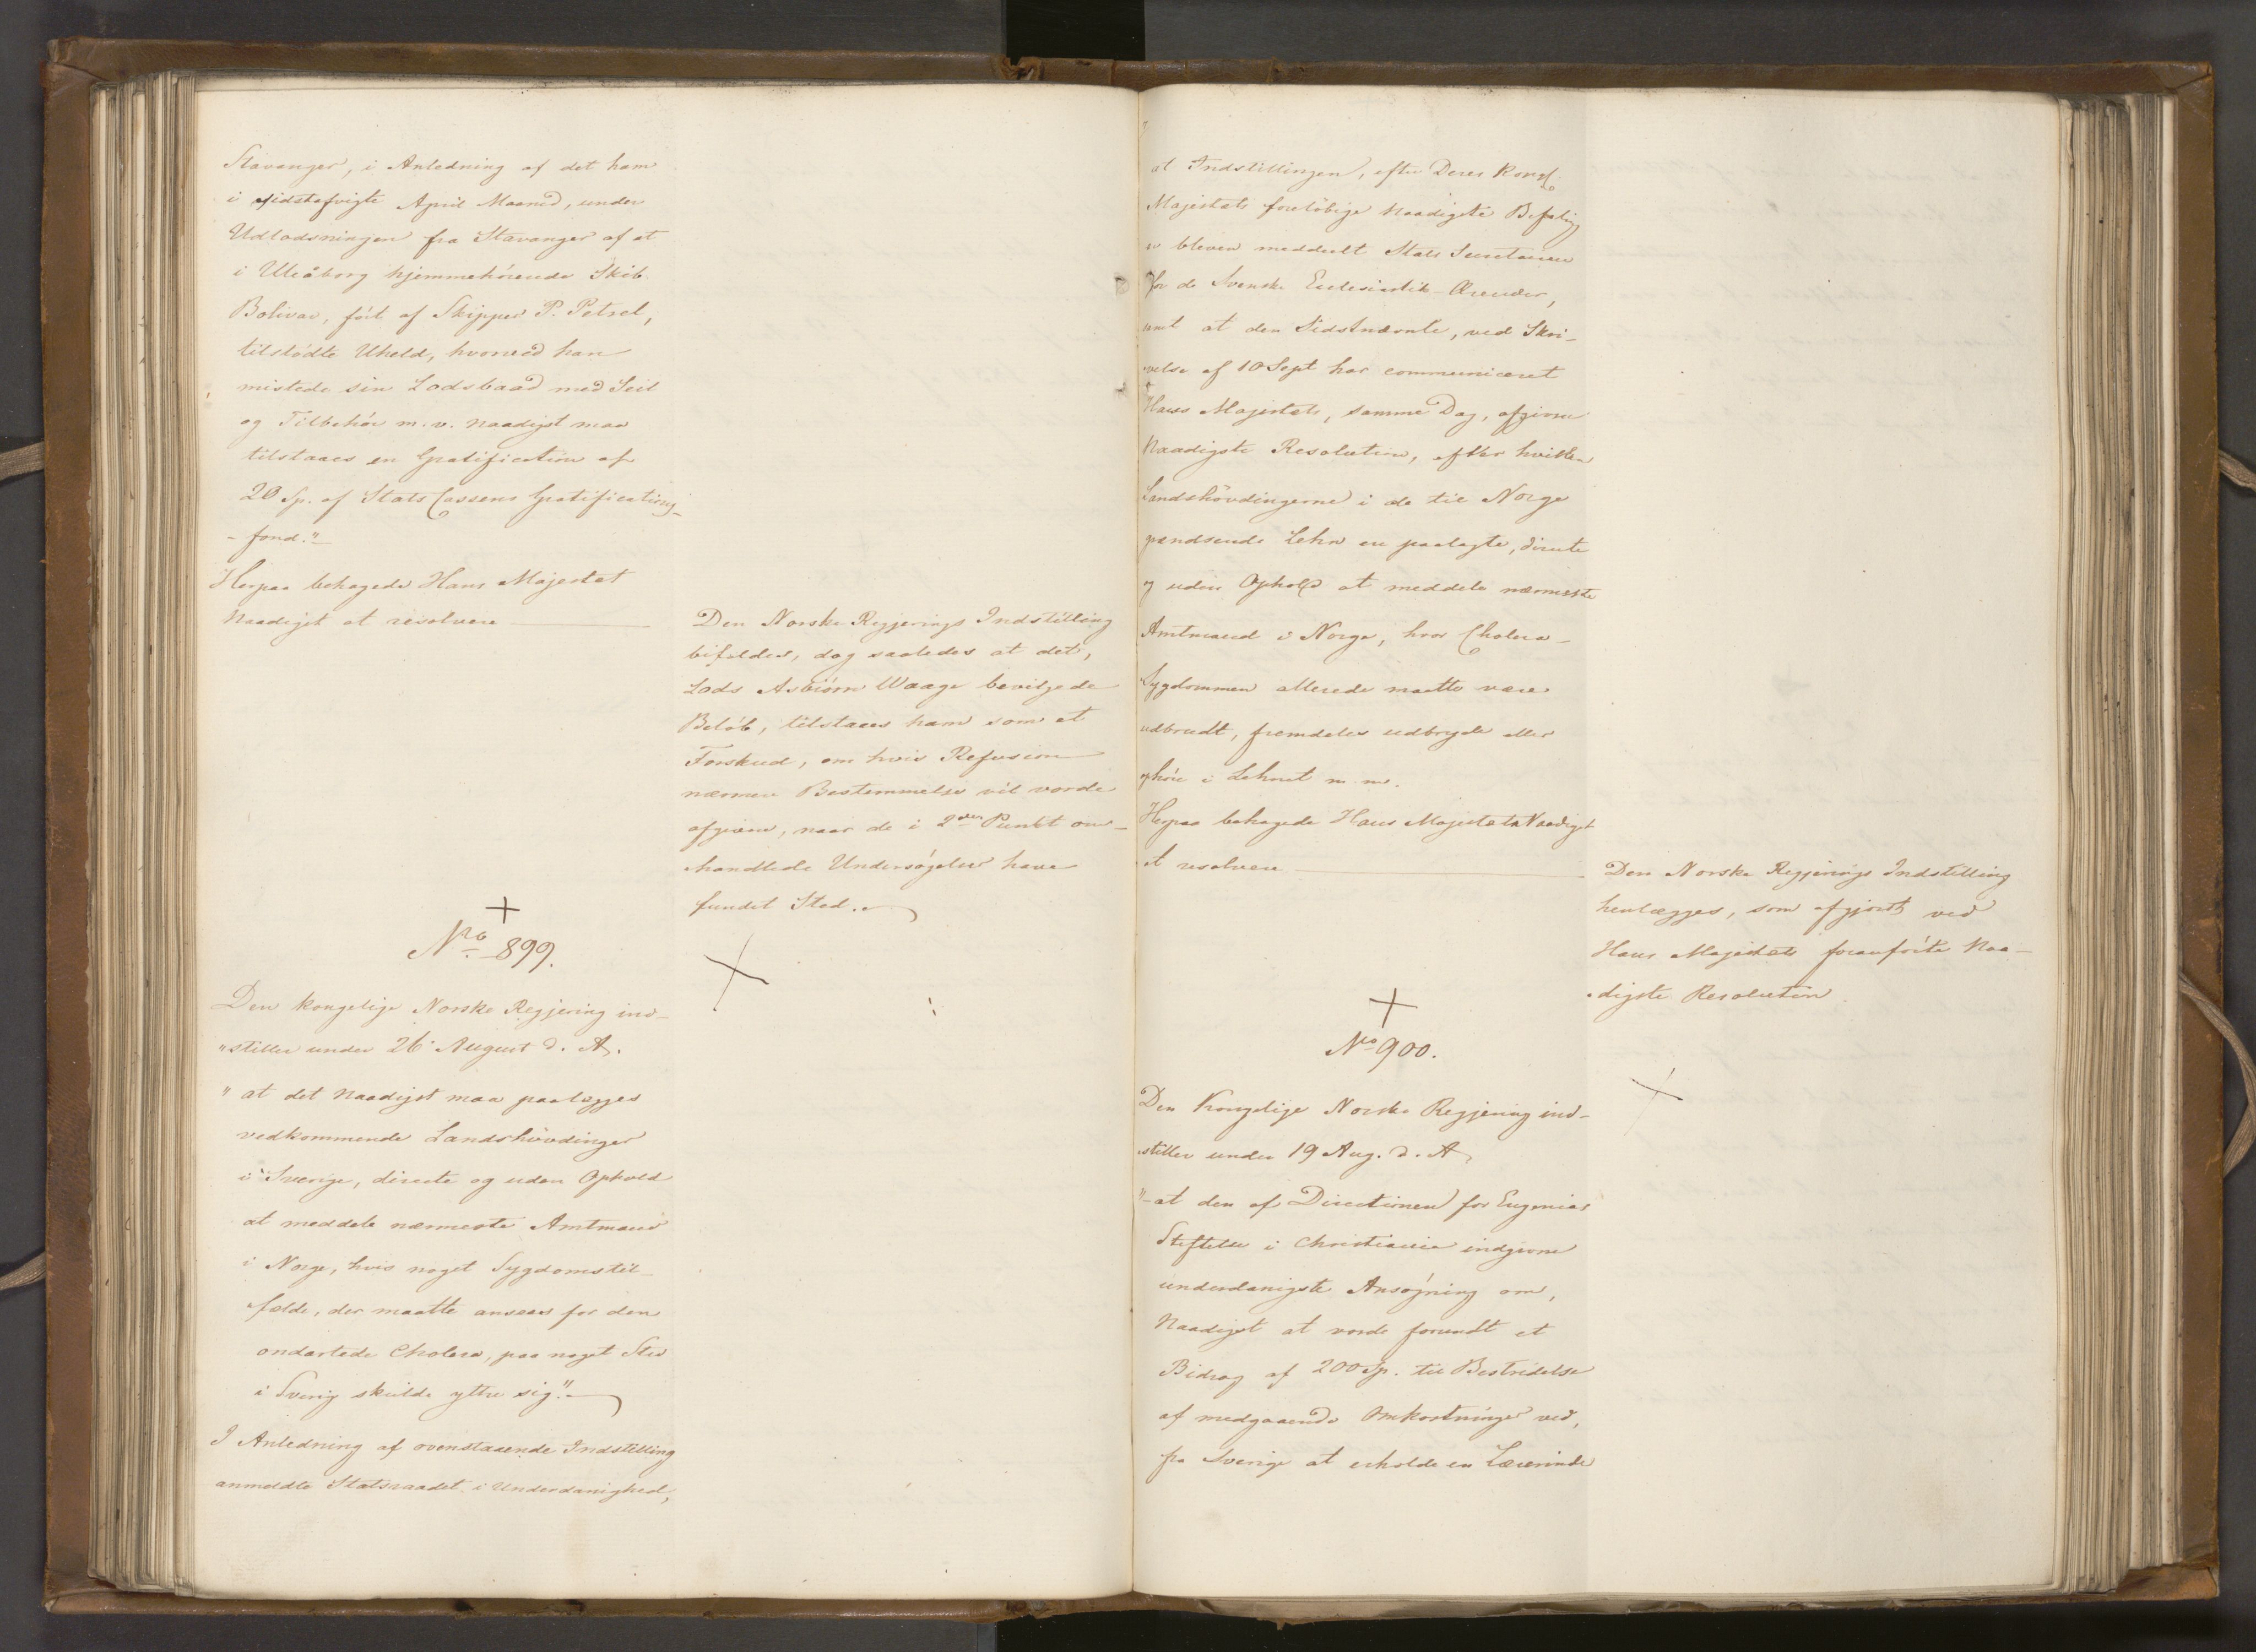 Stavanger, i Anledning af det ham
i sidstafvigte April Maaned, under
Udlodsningen fra Stavanger af et
i Uleåborg hjemmehörende Skib
Bolivar, fört af Skipper P. Petrel,
tilstödte Uheld, hvorved han
mistede sin Lodsbaad med Seil
og Tilbehör m. v. naadigst maa
tilstaaes en Gratification af
20 Sp. af Stats Cassens Gratifications-
- fond."
Herpaa behagede Hans Majestet
Naadigst at resolvere
Den Norske Regjerings Indstilling
bifaldes, dog saaledes at det,
Lods Asbiörn Waage bevilgede
Belöb, tilstaaes ham som et
Forskud, om hvis Refusion
nærmere Bestemmelse vil vorde
afgiven, naar de i 2den Punkt om-
handlede Undersögelser have
fundet Sted.
No 899.
Den kongelige Norske Regjering ind-
"stiller under 26 August d. A.
" at det Naadigst maa paalægges
vedkommende Landshövdinger
i Sverige, directe og uden Ophold
at meddele nærmeste Amtmand
i Norge, hvis noget Sygdomstil-
fælde, der maatte ansees for den
ondartede Cholera, paa noget Sted
i Sverig skulde yttre sig."
I Anledning af ovenstaaende Indstilling
anmeldte Statsraadet i Underdanighed,
at Indstillingen, efter Deres Kongl
Majestets forelöbige Naadigste Befaling
er bleven meddeelt Stats Secretairen
for de Svenske Ecclesiastik-Ærender,
samt at den Sidstnævnte, ved Skri-
velse af 10 Sept har communiceret
Hans Majestets, samme Dag, afgivne
Naadigste Resolution, efter hvilken
Landshövdingerne i de til Norge
grændsende Lehn ere paalagte, directe
og uden Ophold at meddele nærmeste
Amtmand i Norge, hvor Cholera-
Sygdommen allerede maatte være
udbrudt, fremdeles udbryde eller
ophöre i Lehnet m. m.
Herpaa behagede Hans Majestet Naadigst
at resolvere
Den Norske Regjerings Indstilling
henlægges, som afgjordt ved
Hans Majestets foranförte Naa-
digste Resolution
No 900.
Den Kongelige Norske Regjering ind-
stiller under 19 Aug. d. A
"at den af Directionen for Eugenias
Stiftelse i Christiania indgivne
underdanigste Ansögning om,
Naadigst at vorde forundt et
Bidrag af 200 Sp. til Bestridelse
af medgaaende Omkostninger ved,
fra Sverige at erholde en Lærerinde